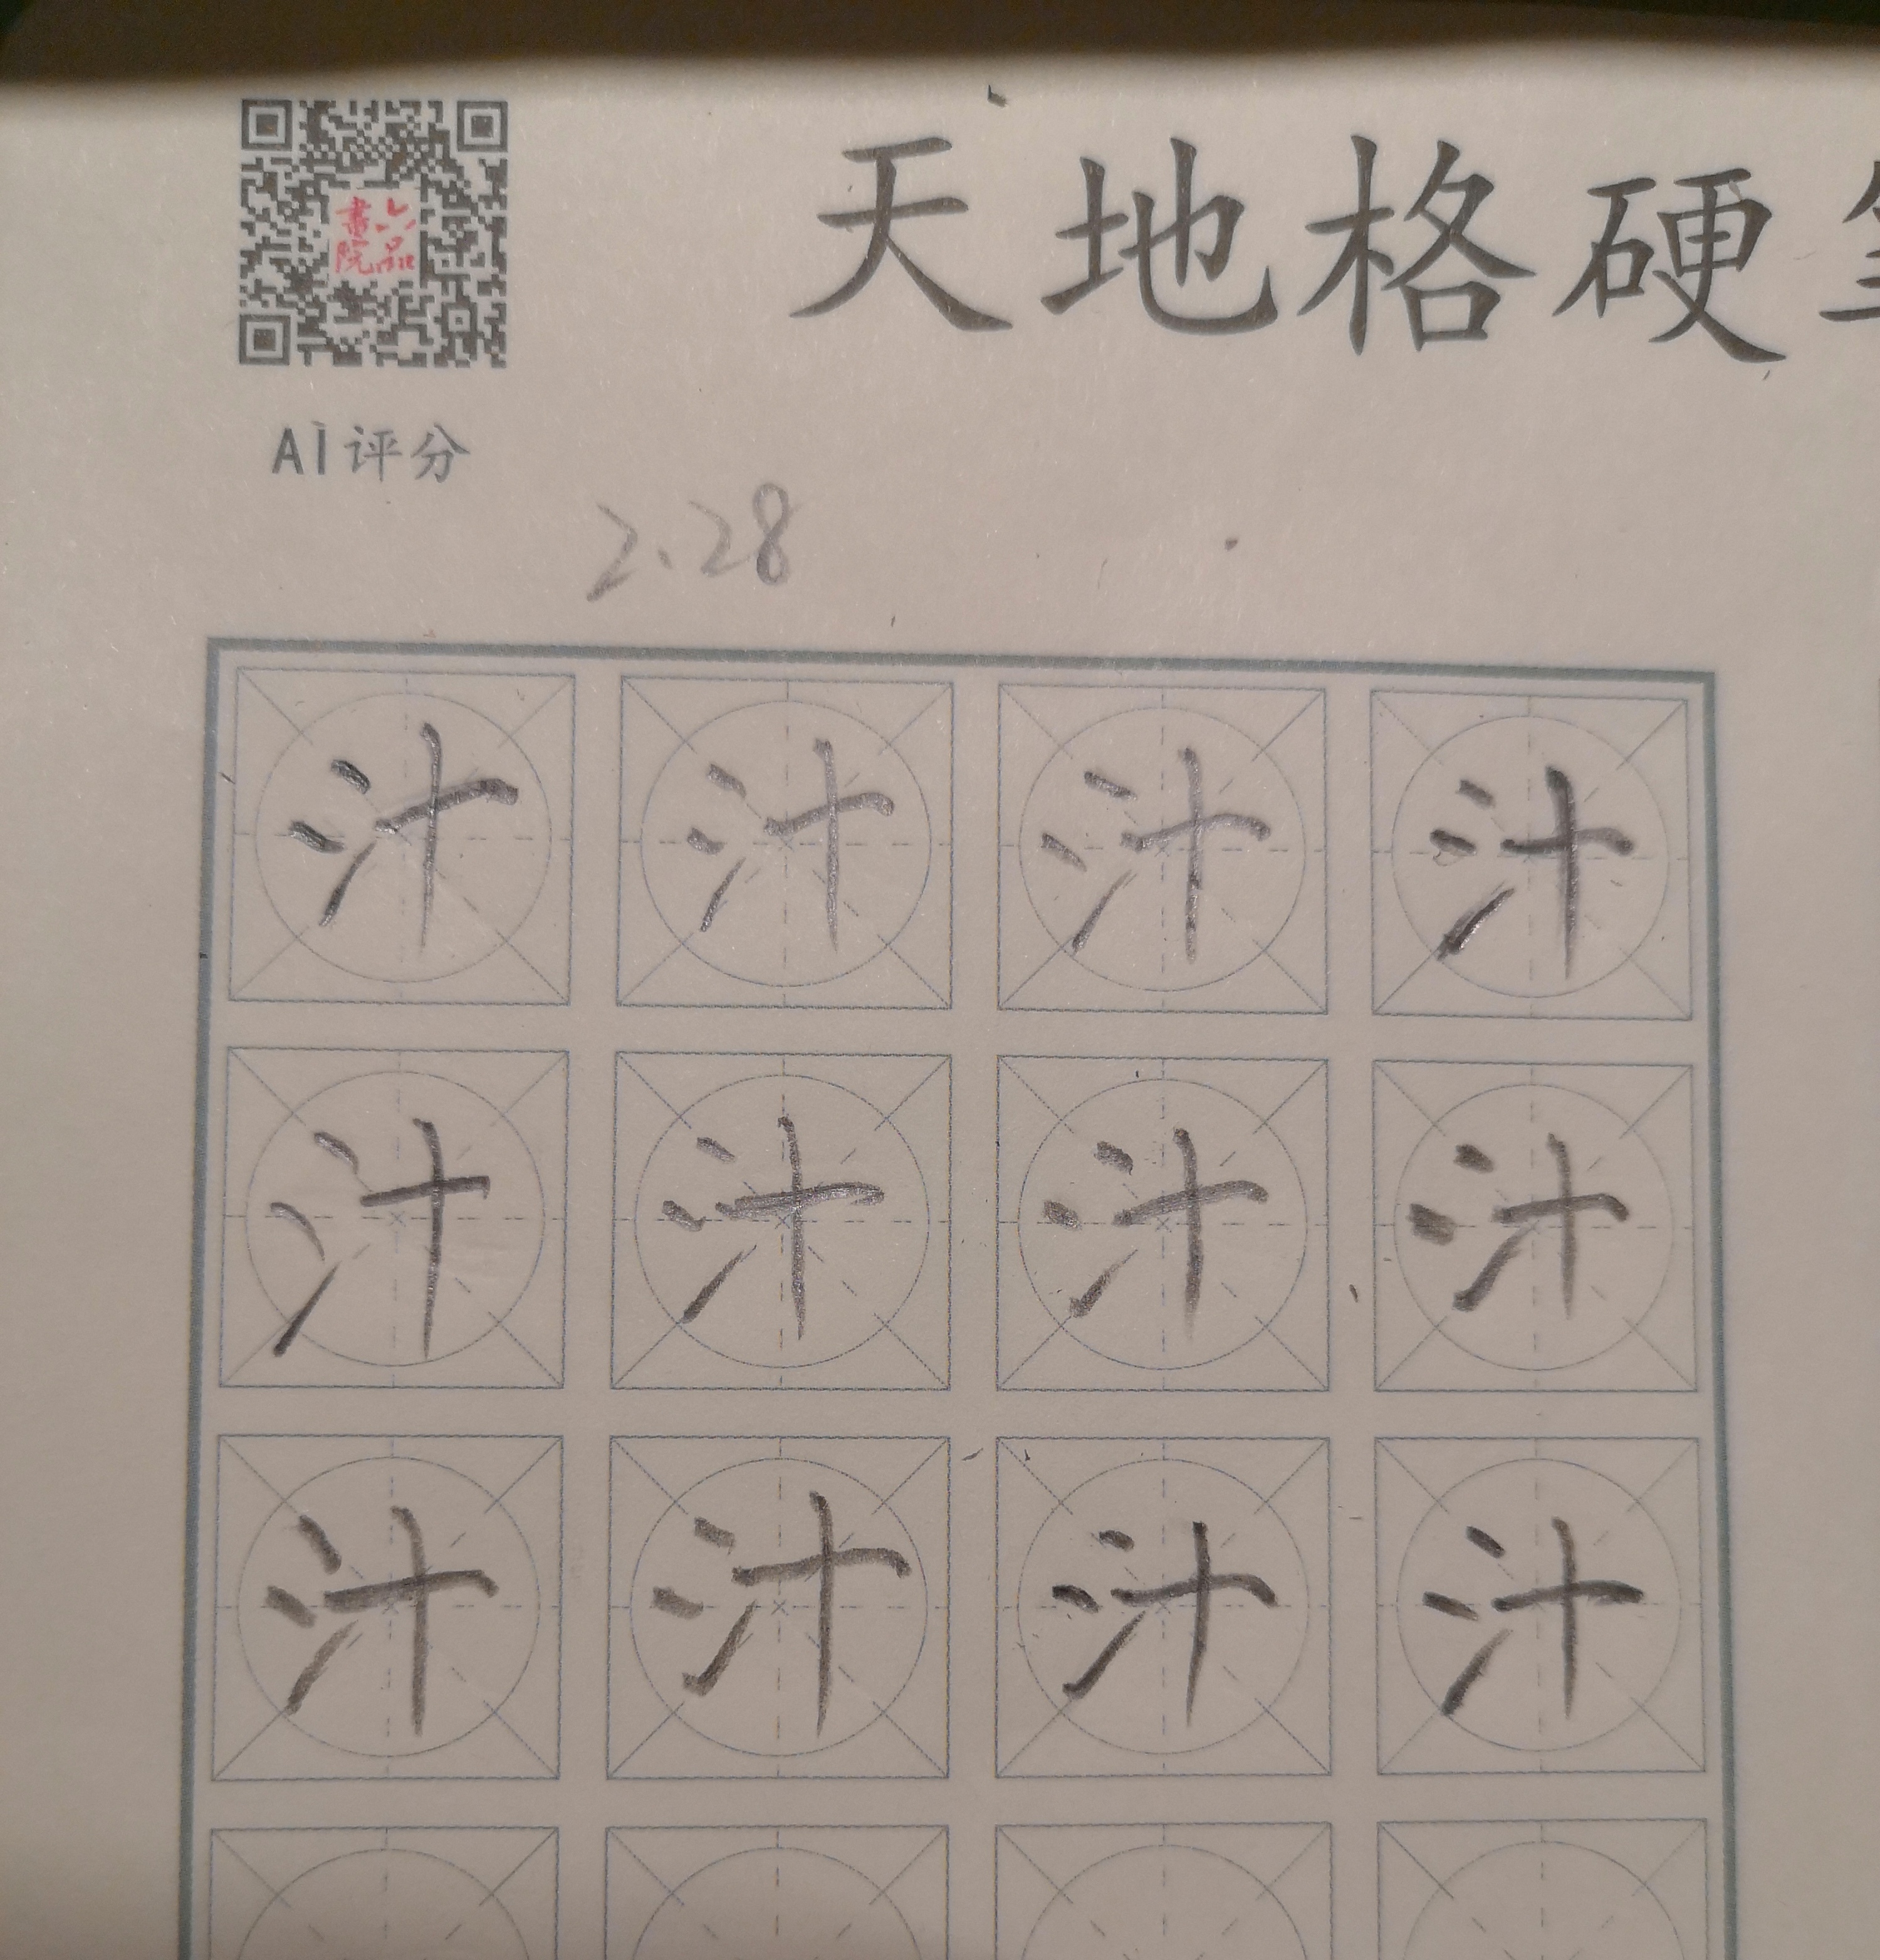 六品書院
天地格硬
AI评分
2.28
汁 汁 汁 汁
汁 汁 汁 汁
汁 汁 汁 汁